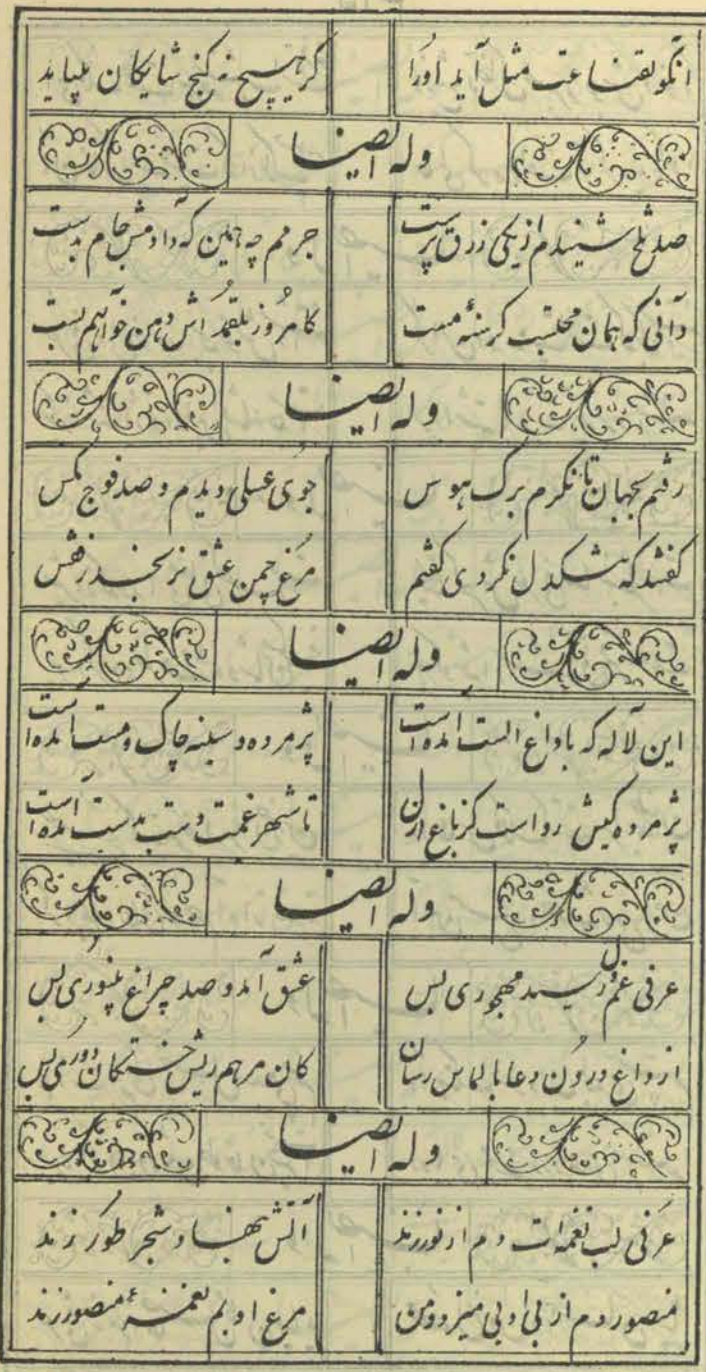 آنکو بقناعت مثل آید اورا گر هیچ نه گنج شایگان میباید
وله ایضا
صد تلخ شنیدم از یکی زرق پرست جرمم چه همین که دادمش جام بدست
دانی که همان محتسب گرسنهٔ مست کامروز بلقمه اش دهن خواهم بست
وله ایضا
رفتم بجهان تا نگرم برگ هوس جوی عسلی دیدم و صد فوج مگس
گفتند که خشکدل نکردی گفتم مرغ چمن عشق نرنجد ز قفس
وله ایضا
این لاله که با داغ الست آمده است پژمرده و سینه چاک و مست آمده است
پژمرده کیش رواست کز باغ ازل تا شهر غمت دست بدست آمده است
وله ایضا
عرفی غم دل مهجوری بس عشق آمد و صد چراغ بینوری بس
از داغ درون دعا بالماس رسان کان مرهم ریش خستگان دوری بس
وله ایضا
عرفی لب نغمه ات دم از نور زند آتش بنهاد شجر طور زند
منصور دم از بی او بی میزد و من مرغ او بم نغمهٔ منصور زند